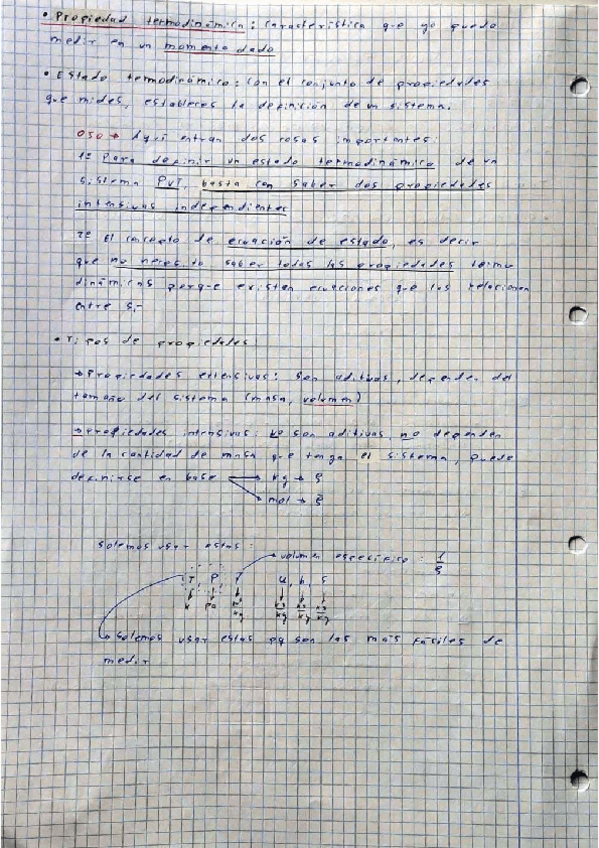 • Propiedad termodinámica: Característica que yo puedo
medir en un momento dado
• Estado termodinámico: Con el conjunto de propiedades
que mides, estableces la definición de un sistema.
OSO → Aquí entran dos cosas importantes:
1º Para definir un estado termodinámico de un
sistema PVT, basta con saber dos propiedades
intensivas independientes
2º El concepto de ecuación de estado, es decir
que no necesito saber todas las propiedades termo
dinámicas porque existen ecuaciones que las relacionan
entre sí
• Tipos de propiedades:
→ Propiedades extensivas: Son aditivas, dependen del
tamaño del sistema (masa, volumen)
→ Propiedades intensivas: No son aditivas, no dependen
de la cantidad de masa que tenga el sistema, puede
definirse en base → kg →
→ mol →
Solemos usar estas:
→ volumen específico: 1
T, P, u, h, s
K Pa kg kg kg kg
→ Solemos usar estas pq son las más fáciles de
medir